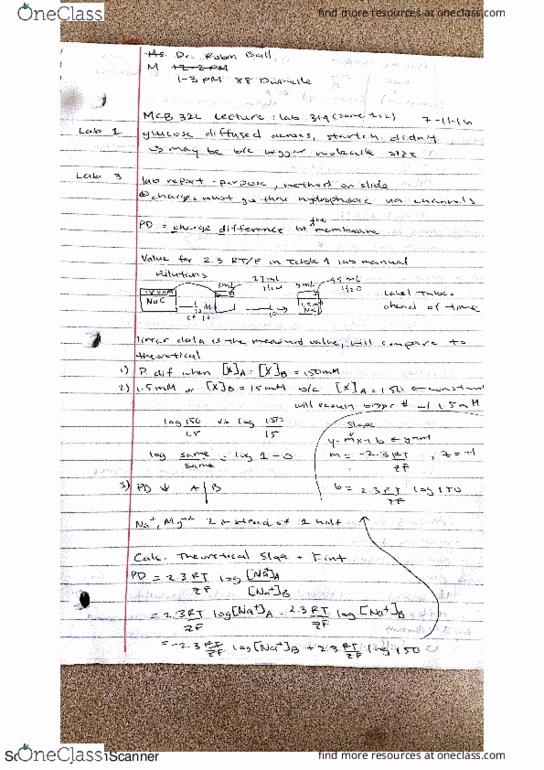 OneClass
find more resources at oneclass.com
Dr. Robin Ball
M 12-2 PM
1-3 PM
MCB 32L Lecture: lab 3/9 (some 1+2) 7-11-16
Lab 1 glucose diffused across, starch didn't
↳ may be b/c bigger molecule size
Lab 3 lab report - purpose, method on slide
charge must go thru hydrophobic via channels
PD = charge difference the membrane
Value for 2.3 RT/F in Table 1 lab manual
dilutions
5ml 27ml H2O 5ml 45ml H2O
NaCl
Label Tubes
ahead of time
linear data is the measured value, will compare to
theoretical
1) P. dif when [X]A = [X]B = 150mM
2) 1.5mM or [X]B = 15mM b/c [X]A = 150 ← constant
will return bigger # w/ 1.5mM
log 150/1.5 vs log 150/15
log same/same = log 1 = 0
Slope
y = mx + b
m = -2.3RT/zF , z = +1
b = 2.3RT/zF log 150
3) PD ↓ A | B
Na+, Mg++ 2 instead of 1 half
Calc. Theoretical Slope + Y int
PD = 2.3RT/zF log [Na+]A/[Na+]B
= 2.3RT/zF log[Na+]A - 2.3RT/zF log[Na+]B
= -2.3 RT/zF log[Na+]B + 2.3 RT/zF log 150
OneClass
Scanner
find more resources at oneclass.com